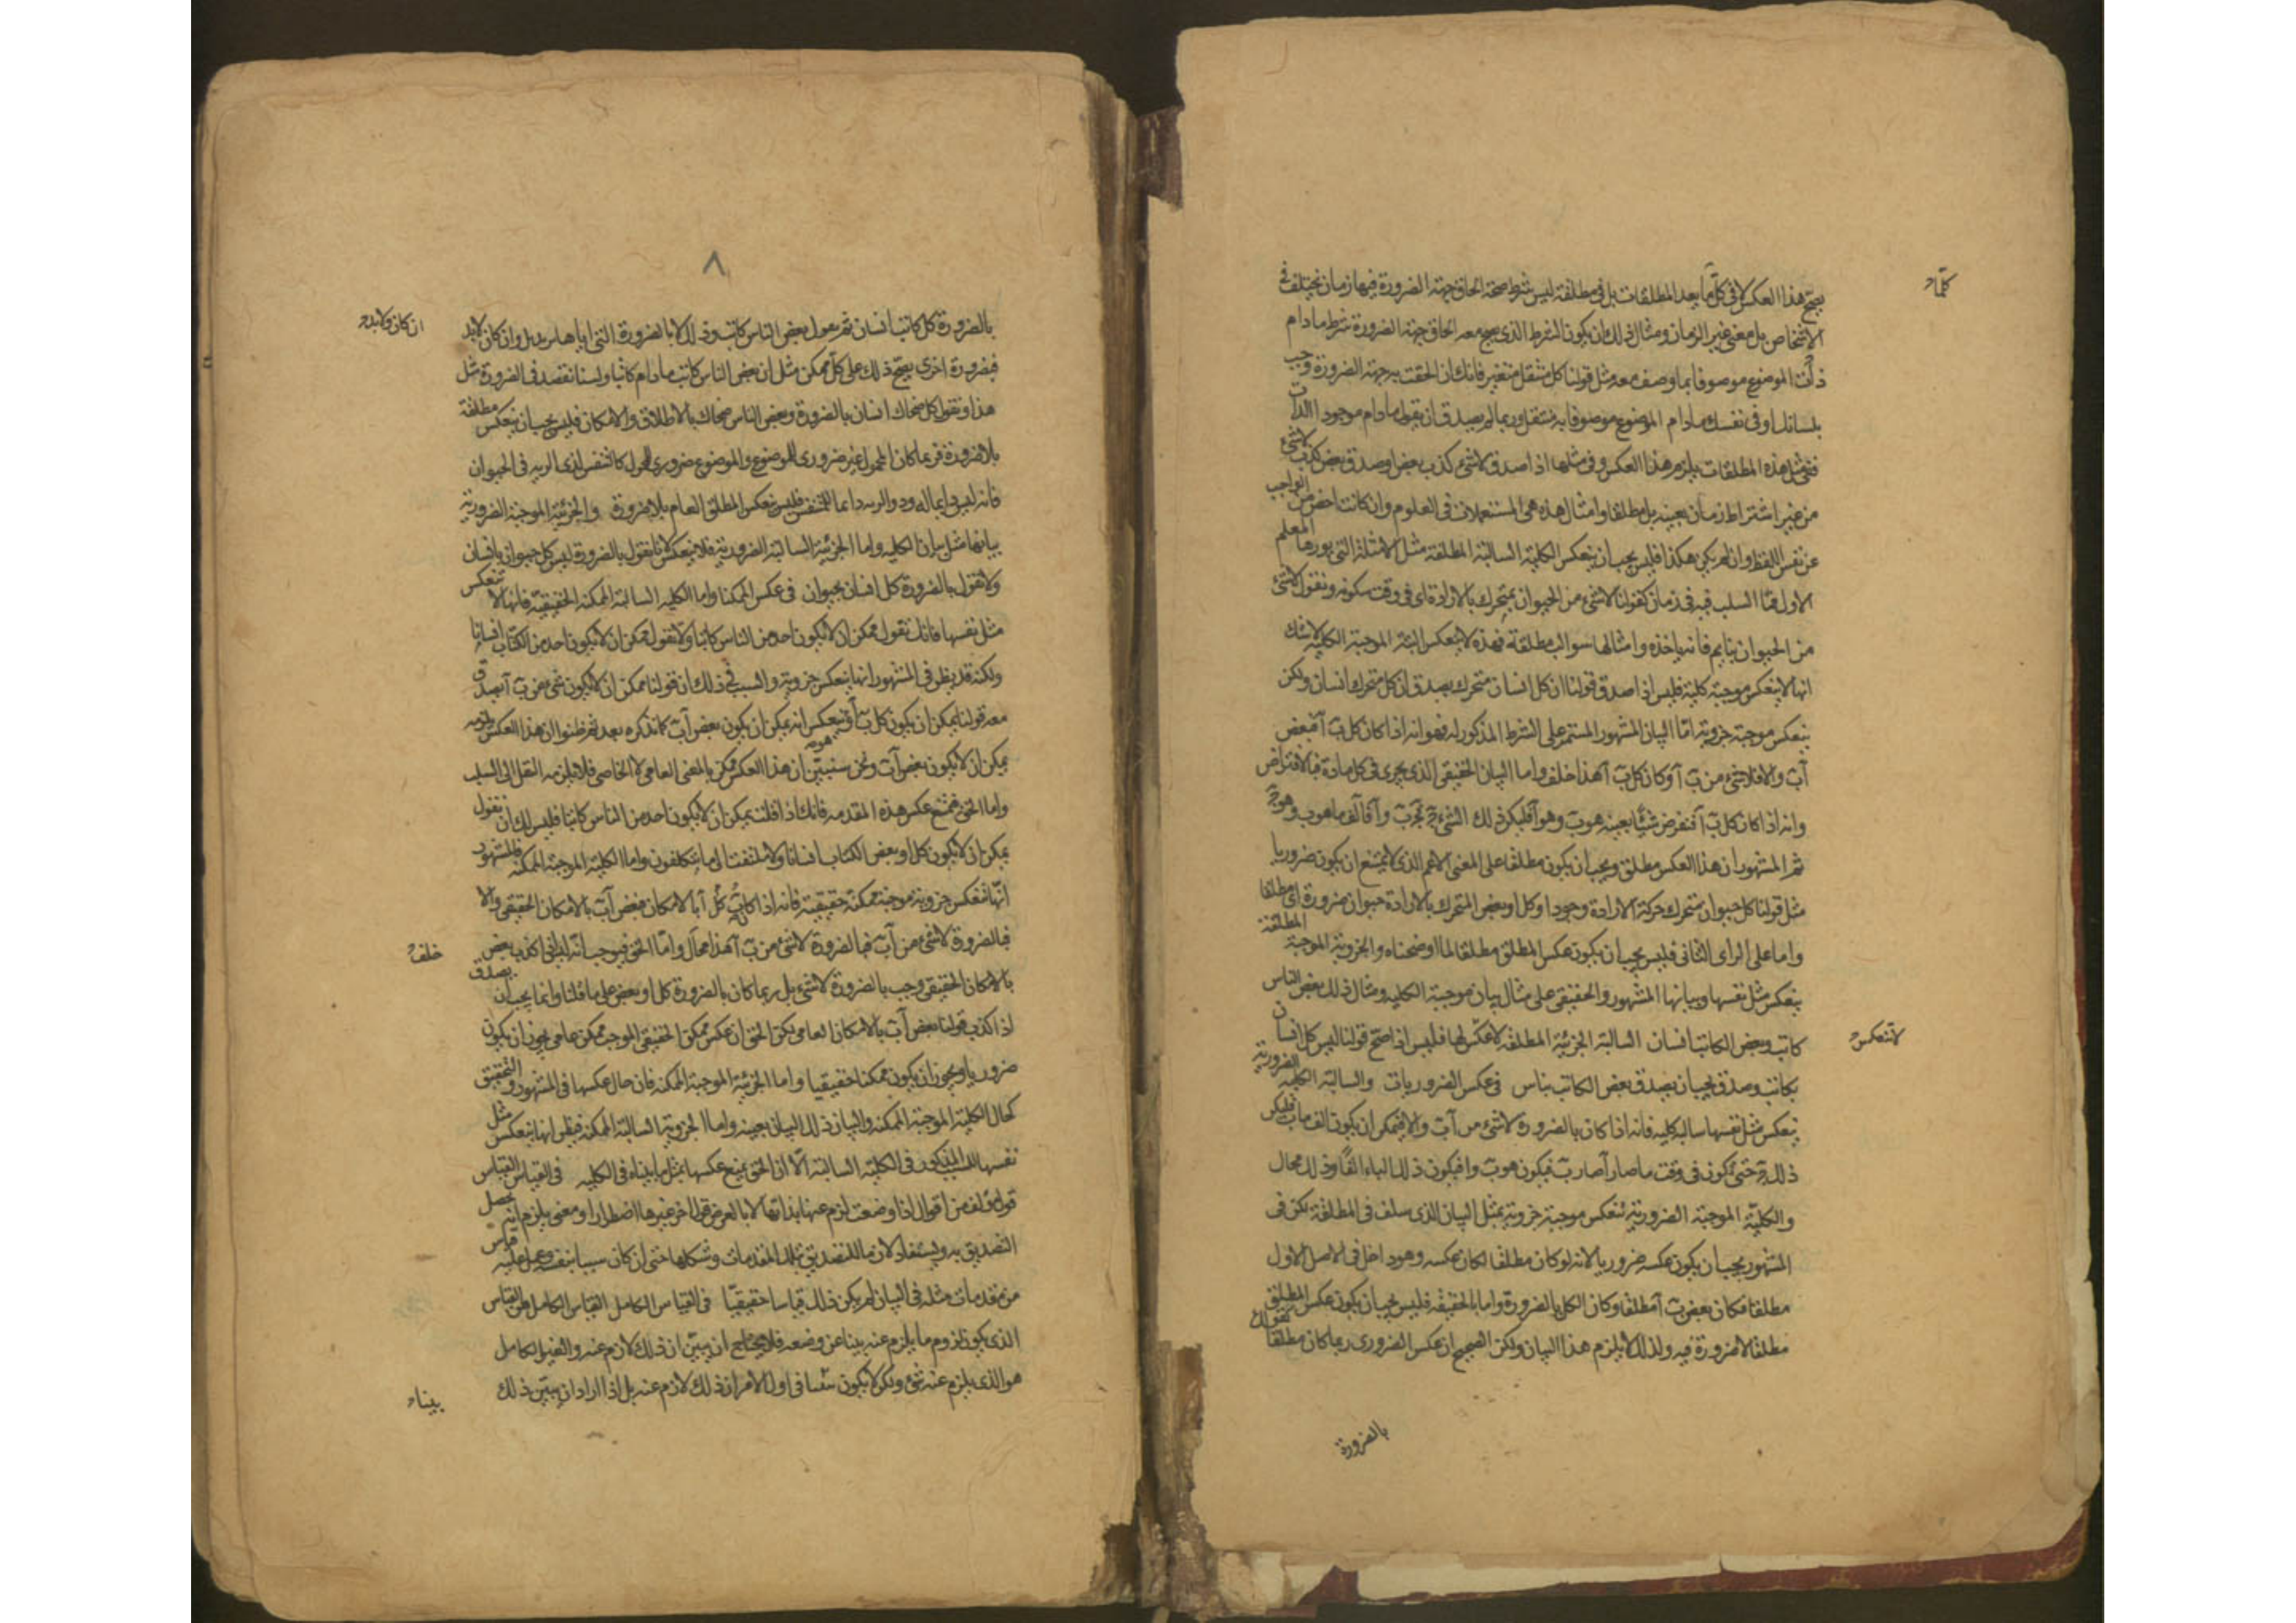 كلما
يصح هذا العكس لا فى كل ما يعد المطلقات بل فى مطلقة ليس شرط صحة الحاق جهة الضرورة فيها زمان يختلف فى
الاشخاص بل معنى غير الزمان ومثال ذلك ان يكون الشرط الذى يصح معه الحاق جهة الضرورة شرط ما دام
ذات الموضوع موصوفا بما وصف معه مثل قولنا كل متنقل متغير فانك ان الحقت به جهة الضرورة وجب
بلسانك او فى نفسك ما دام الموضوع موصوفا به متنقل وربما لم يصدق ان يقول ما دام موجود الذات
ففى مثل هذه المطلقات يلزم هذا العكس وفى مثلها اذا صدق لا شئ كذب بعض او صدق بعض كذب لا شئ
من غير اشتراط زمان بعينه بل مطلقا وامثال هذه هى المستعملات فى العلوم وان كانت اخص من الواجب
عن نفس اللفظ وان لم يكن هكذا فليس يجب ان ينعكس الكلية السالبة المطلقة مثل الامثلة التى يوردها المعلم
الاول مما السلب فيه فى زمان كقولنا لا شئ من الحيوان بمتحرك بالارادة اى فى وقت سكونه ونقول لا شئ
من الحيوان بنايم فانه ياخذه وامثالها سوالب مطلقة فهذه لا ينعكس البتة الموجبة الكلية لا شك
انها لا ينعكس موجبة كلية فليس اذا صدق قولنا ان كل انسان متحرك يصدق ان كل متحرك انسان ولكن
ينعكس موجبة جزوية اما البيان المشهور المستمر على الشرط المذكور له فهو انه اذا كان كل ب آ فبعض
آب والا فلا شئ من ب آ وكان كل ب آ هذا خلف واما البيان الحقيقى الذى يجرى فى كل مادة فبالافتراض
وانه اذا كان كل ب آ فنفرض شيئا بعينه هو ب وهو آ فليكن ذلك الشئ ج فج ب وآ فالف ما هو ب وهو ج
ثم المشهور ان هذا العكس مطلق ويجب ان يكون مطلقا على المعنى الاعم الذى لا يمنع ان يكون ضروريا
مثل قولنا كل حيوان متحرك حركة الارادة وجودا وكل او بعض المتحرك بالارادة حيوان ضرورة اى مطلقا
واما على الراى الثانى فليس يجب ان يكون عكس المطلق مطلقا لما اوضحناه والجزوية الموجبة المطلقة
ينعكس مثل نفسها وبيانها المشهور والحقيقى على مثال بيان موجبة الكلية ومثال ذلك بعض الناس
كاتب وبعض الكاتب انسان السالبة الجزئية المطلقة لا عكس لها فليس اذا صح قولنا ليس كل انسان
لا تنعكس
بكاتب وصدق يجب ان يصدق بعض الكاتب بناس فى عكس الضروريات والسالبة الكلية الضرورية
ينعكس مثل نفسها سالبة كلية فانه اذا كان بالضرورة لا شئ من آب والا فيمكن ان يكون الف ما ب فليكن
ذلك ج حتى يكون فى وقت ما صار آ صار ب فيكون هو ب وآ فيكون ذلك الباء الفا وذلك محال
والكلية الموجبة الضرورية تنعكس موجبة جزوية بمثل البيان الذى سلف فى المطلقة لكن فى
المشهور يجب ان يكون عكسه ضروريا لانه لو كان مطلقا لكان عكسه وهو داخل فى الاصل الاول
مطلقا فكان بعض ب آ مطلقا وكان الكل بالضرورة واما بالحقيقة فليس يجب ان يكون عكس المطلق
مطلقا لا ضرورة فيه ولذلك لا يلزم هذا البيان ولكن الصحيح ان عكس الضرورى ربما كان مطلقا كقولك
بالضرورة
٨
بالضرورة كل كاتب انسان ثم نقول بعض الناس كاتب وذلك لا بالضرورة التى اياها نريد بل وان كان لابد
ان كان ولابد
فبضرورة اخرى يصح ذلك على كل ممكن مثل ان بعض الناس كاتب ما دام كاتبا ولسنا نقصد فى الضرورة مثل
هذا ونقول كل ضحاك انسان بالضرورة وبعض الناس ضحاك بالاطلاق والامكان فليس يجب ان ينعكس مطلقة
بلا ضرورة فربما كان المحمول غير ضرورى للموضوع والموضوع ضرورى للمحول كالتنفس لذى الرية فى الحيوان
فانه ليس دايما له وذو الرية دايما للمتنفس فليس ينعكس المطلق العام بلا ضرورة والجزئية الموجبة الضرورية
بيانها مثل بيان الكلية واما الجزئية السالبة الضرورية فلا ينعكس لانا نقول بالضرورة ليس كل حيوان بانسان
ولا نقول بالضرورة كل انسان بحيوان فى عكس الممكنا واما الكلية السالبة الممكنة الحقيقية فانها لا تنعكس
مثل نفسها فانك تقول ممكن ان لا يكون احد من الناس كاتبا ولا تقول ممكن ان لا يكون احد من الكتاب انسانا
ولكنه قد يظن فى المشهور انها ينعكس جزوية والسبب فى ذلك ان قولنا ممكن ان لا يكون شئ من ب آ يصدق
معه قولنا يمكن ان يكون كل ب آ وينعكس انه يمكن ان يكون بعض آب كما نذكره بعد ثم ظنوا ان هذا العكس يلزمه
يمكن ان لا يكون بعض آب ونحن سنبين ان هذا العكس ممكن بالمعنى العامى لا الخاصى فلا يلزمه النقل الى السلب
واما الحق فمنع عكس هذه المقدمة فانك اذا قلت يمكن ان لا يكون احد من الناس كاتبا فليس لك ان تقول
يمكن ان لا يكون كل او بعض الكتاب انسانا ولا يلتفت الى ما يتكلفون واما الكلية الموجبة الممكنة فالمشهور
انها تنعكس جزوية موجبة ممكنة حقيقية فانه اذا كان كل ب آ بالامكان فبعض آب بالامكان الحقيقى والا
فبالضرورة لا شئ من آب فبالضرورة لا شئ من ب آ هذا محال واما الحق فيوجب انه ليس اذا كذب بعض
خلف
بالامكان الحقيقى وجب بالضرورة لا شئ بل ربما كان بالضرورة كل او بعض على ما قلنا وانما يجب ان يصدق
اذا كذب قولنا بعض آب بالامكان العامى لكن الحق ان عكس ممكن الحقيقى الموجب ممكن عامى يجوز ان يكون
ضروريا ويجوز ان يكون ممكنا حقيقيا واما الجزئية الموجبة الممكنة فان حال عكسها فى المشهور والتحقيق
كحال الكلية الموجبة الممكنة والبيان ذلك البيان بعينه واما الجزوية السالبة الممكنة فيظن انها ينعكس مثل
نفسها للسبب المذكور فى الكلية السالبة الا ان الحق يمنع عكسها بمثل ما بيناه فى الكلية فى القياس القياس
قول مؤلف من اقوال اذا وضعت لزم عنها بذاتها لا بالعرض قول اخر غيرها اضطرارا ومعنى يلزم انه يحصل
التصديق به ويستفاد لازما للتصديق بتلك المقدمات وشكلها حتى ان كان سببا بنفسه وعمل عليه قياس
من مقدمات مثله فى البيان لم يكن ذلك قياسا حقيقيا فى القياس الكامل القياس الكامل هو القياس
الذى يكون لزوم ما يلزم عنه بينا عن وضعه فلا يحتاج ان يبين ان ذلك لازم عنه والغير الكامل
هو الذى يلزم عنه شئ ولكن لا يكون بينا فى اول الامر ان ذلك لازم عنه بل اذا اراد ان يبين ذلك
بينا